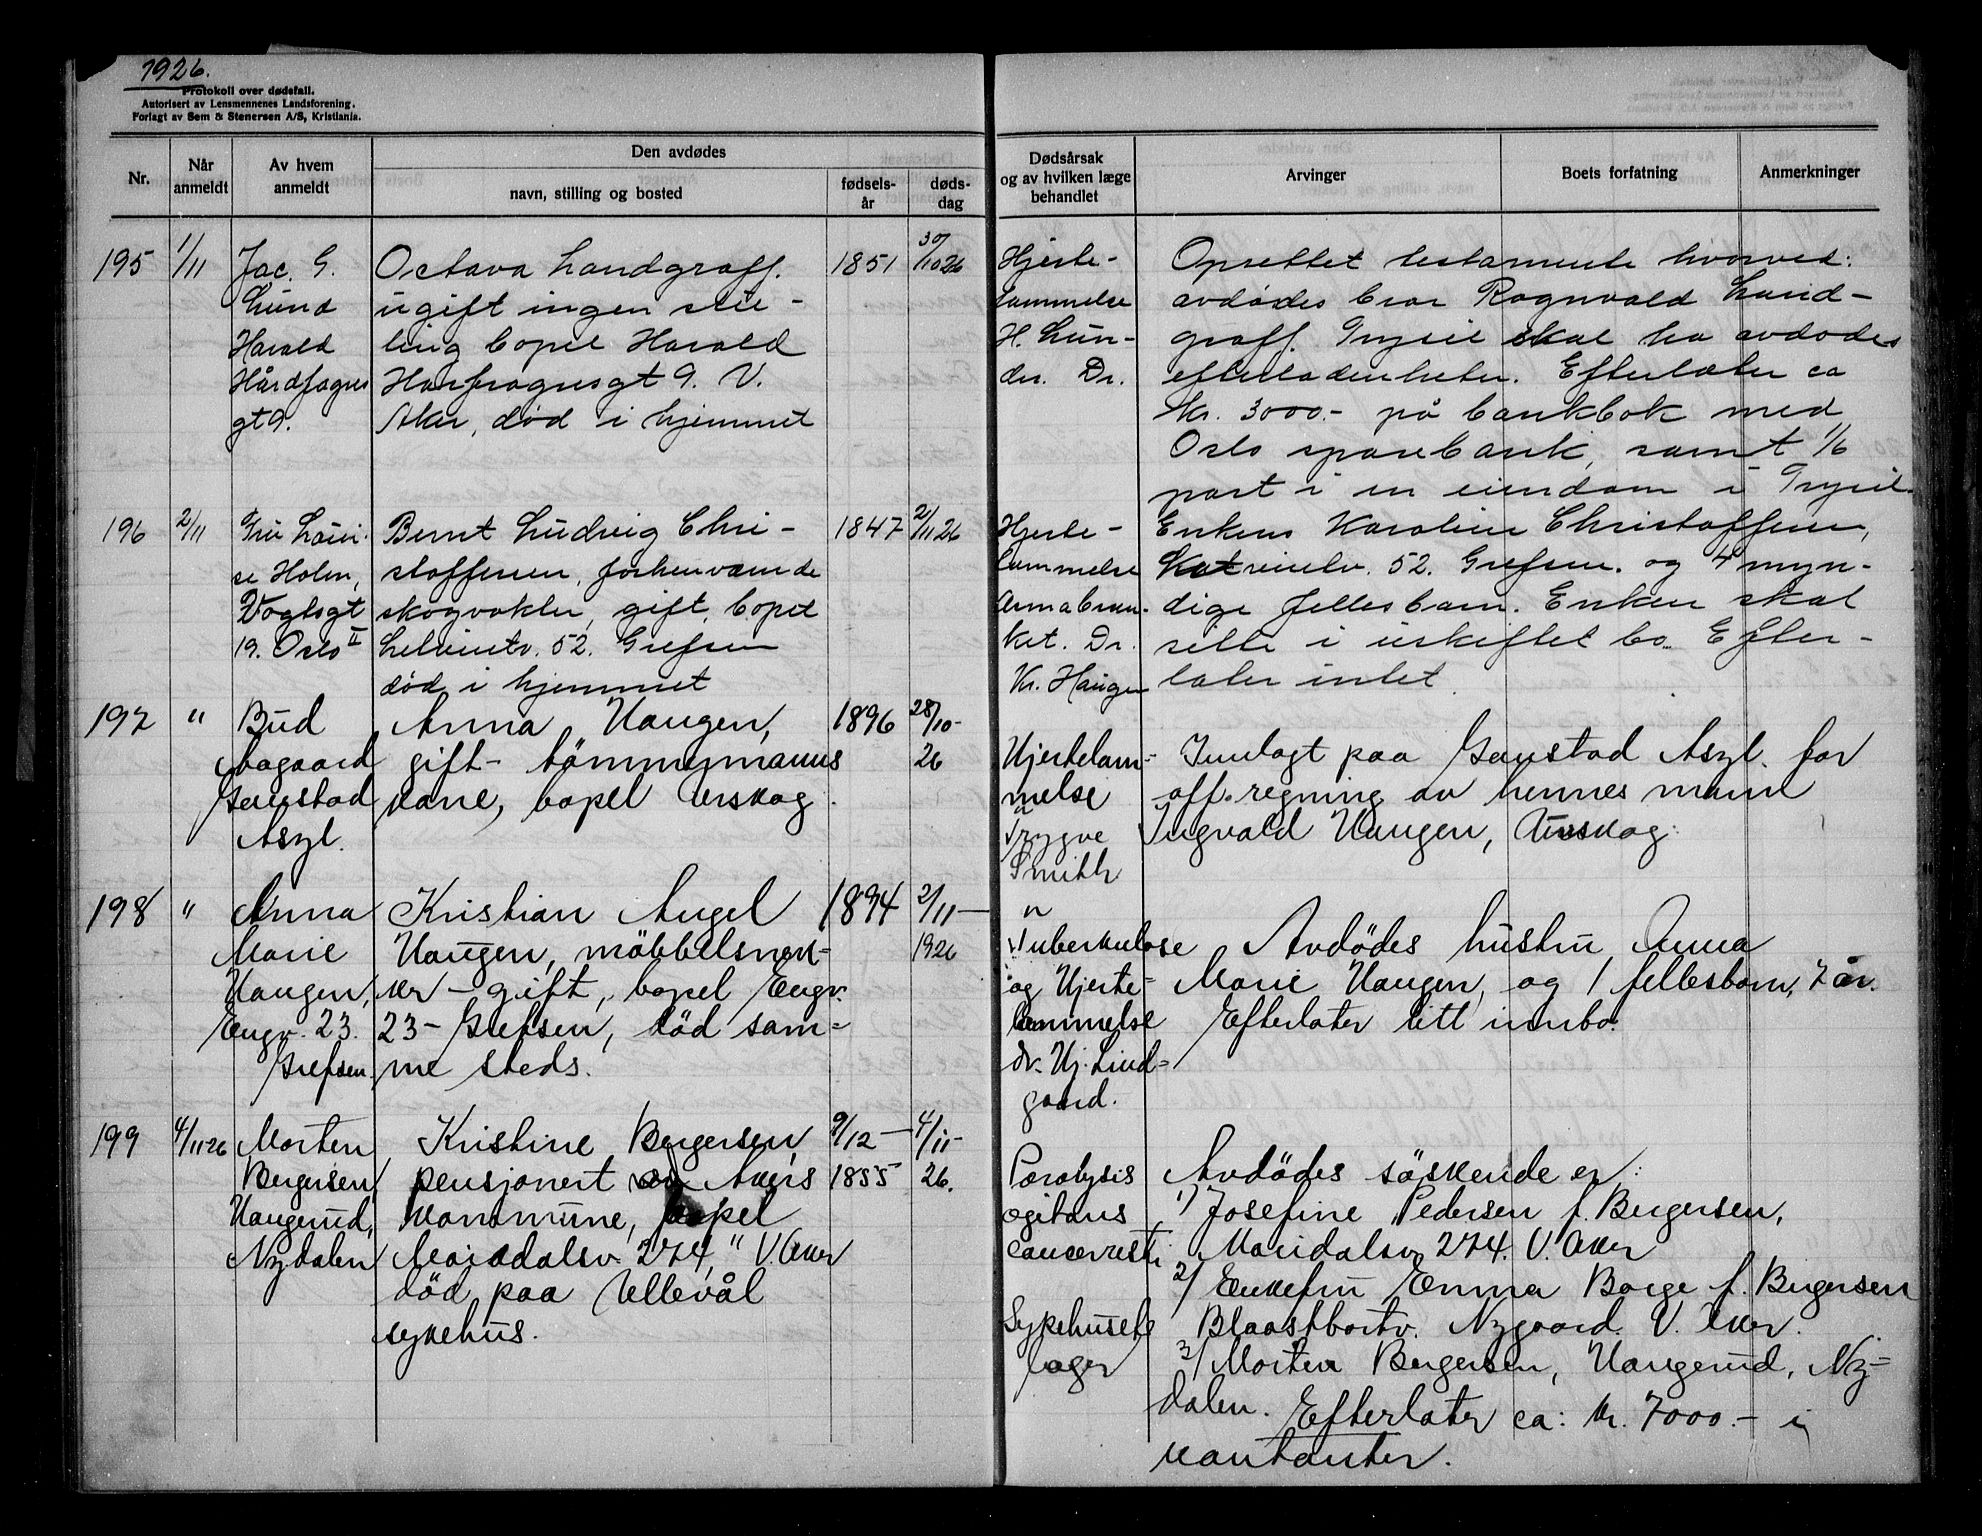 1926.
Protokoll over dødsfall.
Autorisert av Lensmennenes Landsforening.
Forlagt av Sem & Stenersen A/S, Kristiania.
Nr.
Når anmeldt
Av hvem anmeldt
Den avdødes
navn, stilling og bosted
fødsels-år
døds-dag
Dødsårsak og av hvilken læge behandlet
Arvinger
Boets forfatning
Anmerkninger
195
1/11
Jac. G.
Lund
Harald
Hårdfagres
gt 9.
Octava Landgraff.
ugift ingen stil-
ling bopel Harald
Harfragresgt 9. V.
Aker, død i hjemmet
1851
30/10 26
Hjerte-
lammelse
H. Lun-
der. Dr.
Oprettet testamente hvorved
avdødes bror Ragnvald Land-
graff. Trysil skal ha avdødes
efterladenheter. Efterlater ca
kr. 3000.- på bankbok med
Oslo sparebank, samt 1/6
part i en eiendom i Trysil.
196
2/11
Fru Loui-
se Holm,
Vogtsgt
19. Oslo II
Bernt Ludvig Chri-
stoffersen, forhenværende
skogvokter, gift, bopel
52. Grefsen
død i hjemmet
1847
2/11 26
Hjerte-
lammelse
ket. Dr.
Kr. Haugen
Enken Karoline Christoffersen,
52. Grefsen. og 4 myn-
dige fellesbarn. Enken skal
sitte i uskiftet bo. Efter-
later intet.
197
"
Bud
Gaustad
Aszl.
Anna Haugen,
gift- tömmermanns
kone, bopel Urskog.
1896
28/10-
26
Hjertelam=
melse
Trygve
Smith
Innlagt paa Gaustad Aszl. for
off. regning av hennes mann
Ingvald Haugen, Aurskog.
198
"
Anna
Marie
Haugen,
Engv. 23.
Grefsen.
Kristian Angel
Haugen, möbbelsned-
ker - gift, bopel Engv.
23- Grefsen, död sam=
me steds.
1894
2/11-
1926
Tuberkulose
og Hjerte-
lammelse
dr. Hj. Lind=
gaard.
Avdödes hustru Anna
Marie Haugen, og 1 fellesbarn, 7 år.
Efterlater litt innbo.
199
4/11 26
Morten
Bergersen
Haugerud,
Nydalen
Kristine Bergersen,
pensjonert av Akers
kommune, bopel
Maridalsv. 274, " V. Aker
död paa Ullevål
sykehus.
9/12-
1855
4/11-
26.
Paralysis
agitans
Sykehusets
læger
Avdödes söskende er:
1) Josefine Pedersen f. Bergersen,
Maridalsv. 274. V. Aker
2/ Enkefru Emma Borge f. Bergersen
Nygaard. V. Aker.
3/ Morten Bergersen, Haugerud, Ny=
dalen. Efterlater ca: kr. 7000.- i
kontanter.